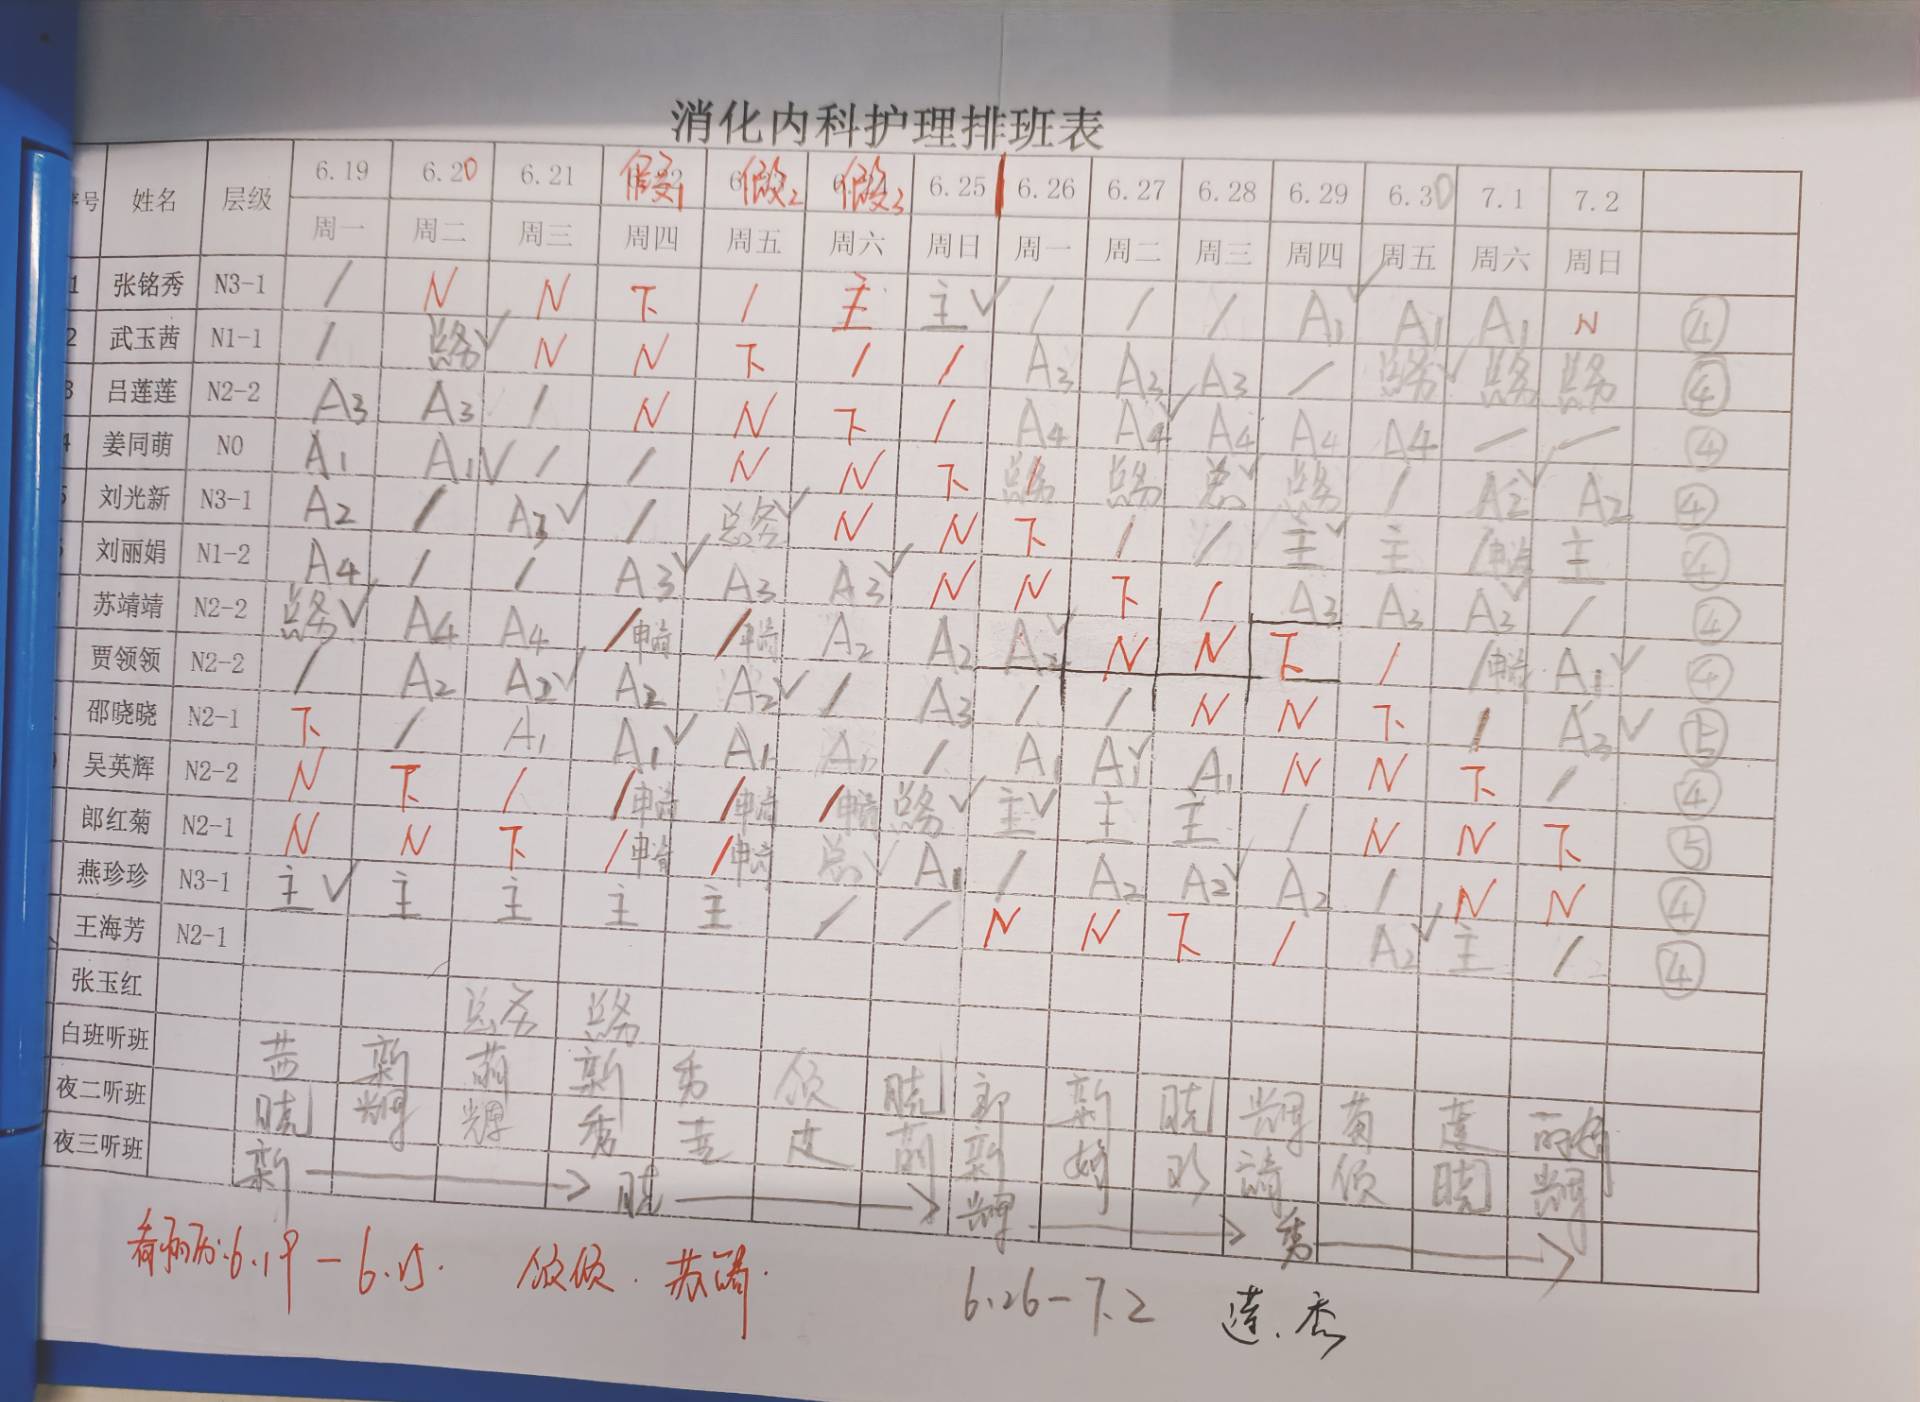 消化内科护理排班表
序号 姓名 层级 6.19 6.20 6.21 假1 假2 假3 6.25 6.26 6.27 6.28 6.29 6.30 7.1 7.2
周一 周二 周三 周四 周五 周六 周日 周一 周二 周三 周四 周五 周六 周日
1 张铭秀 N3-1 / N N 下 / 主 主✓ / / / A1✓ A1 A1 N ④
2 武玉茜 N1-1 / 总务✓ N N 下 / / A3 A3 A3 / 总务✓ 总务 总务 ④
3 吕莲莲 N2-2 A3 A3 / N N 下 / A4 A4✓ A4 A4 A4 — — ④
4 姜同萌 N0 A1 A1✓ / / N N 下 总务 总务 总✓ 总务 / A2✓ A2 ④
5 刘光新 N3-1 A2 / A3✓ / 总务✓ N N 下 / / 主✓ 主 /申请 主 ④
刘丽娟 N1-2 A4 / / A3✓ A3 A3✓ N N 下 / A3 A3 A3✓ / ④
苏靖靖 N2-2 总务✓ A4 A4 /申请 /申请 A2 A2 A2✓ N N 下 / /申请 A1✓ ④
贾领领 N2-2 / A2 A2✓ A2 A2✓ / A3 / / N N 下 / A3✓ ⑤
邵晓晓 N2-1 下 / A1 A1✓ A1 A1 / A1 A1✓ A1 N N 下 / ④
吴英辉 N2-2 N 下 / /申请 /申请 /申请 总务✓ 主✓ 主 主 / N N 下 ⑤
郎红菊 N2-1 N N 下 /申请 /申请 总✓ A1 / A2 A2✓ A2 / N N ④
燕珍珍 N3-1 主✓ 主 主 主 主 / / N N 下 / A2✓ 主 / ④
王海芳 N2-1
张玉红 总务 总务
白班听班 茜 新 萌 新 秀 领 晓 郎 新 晓 辉 菊 莲 丽娟
夜二听班 晓 辉 辉 秀 莲 萌 新 娟 靖 领 晓 辉
夜三听班 新 → 晓 → 辉 → 秀 →
6.19 - 6.25. 领领. 苏靖.
6.26 - 7.2 莲. 秀